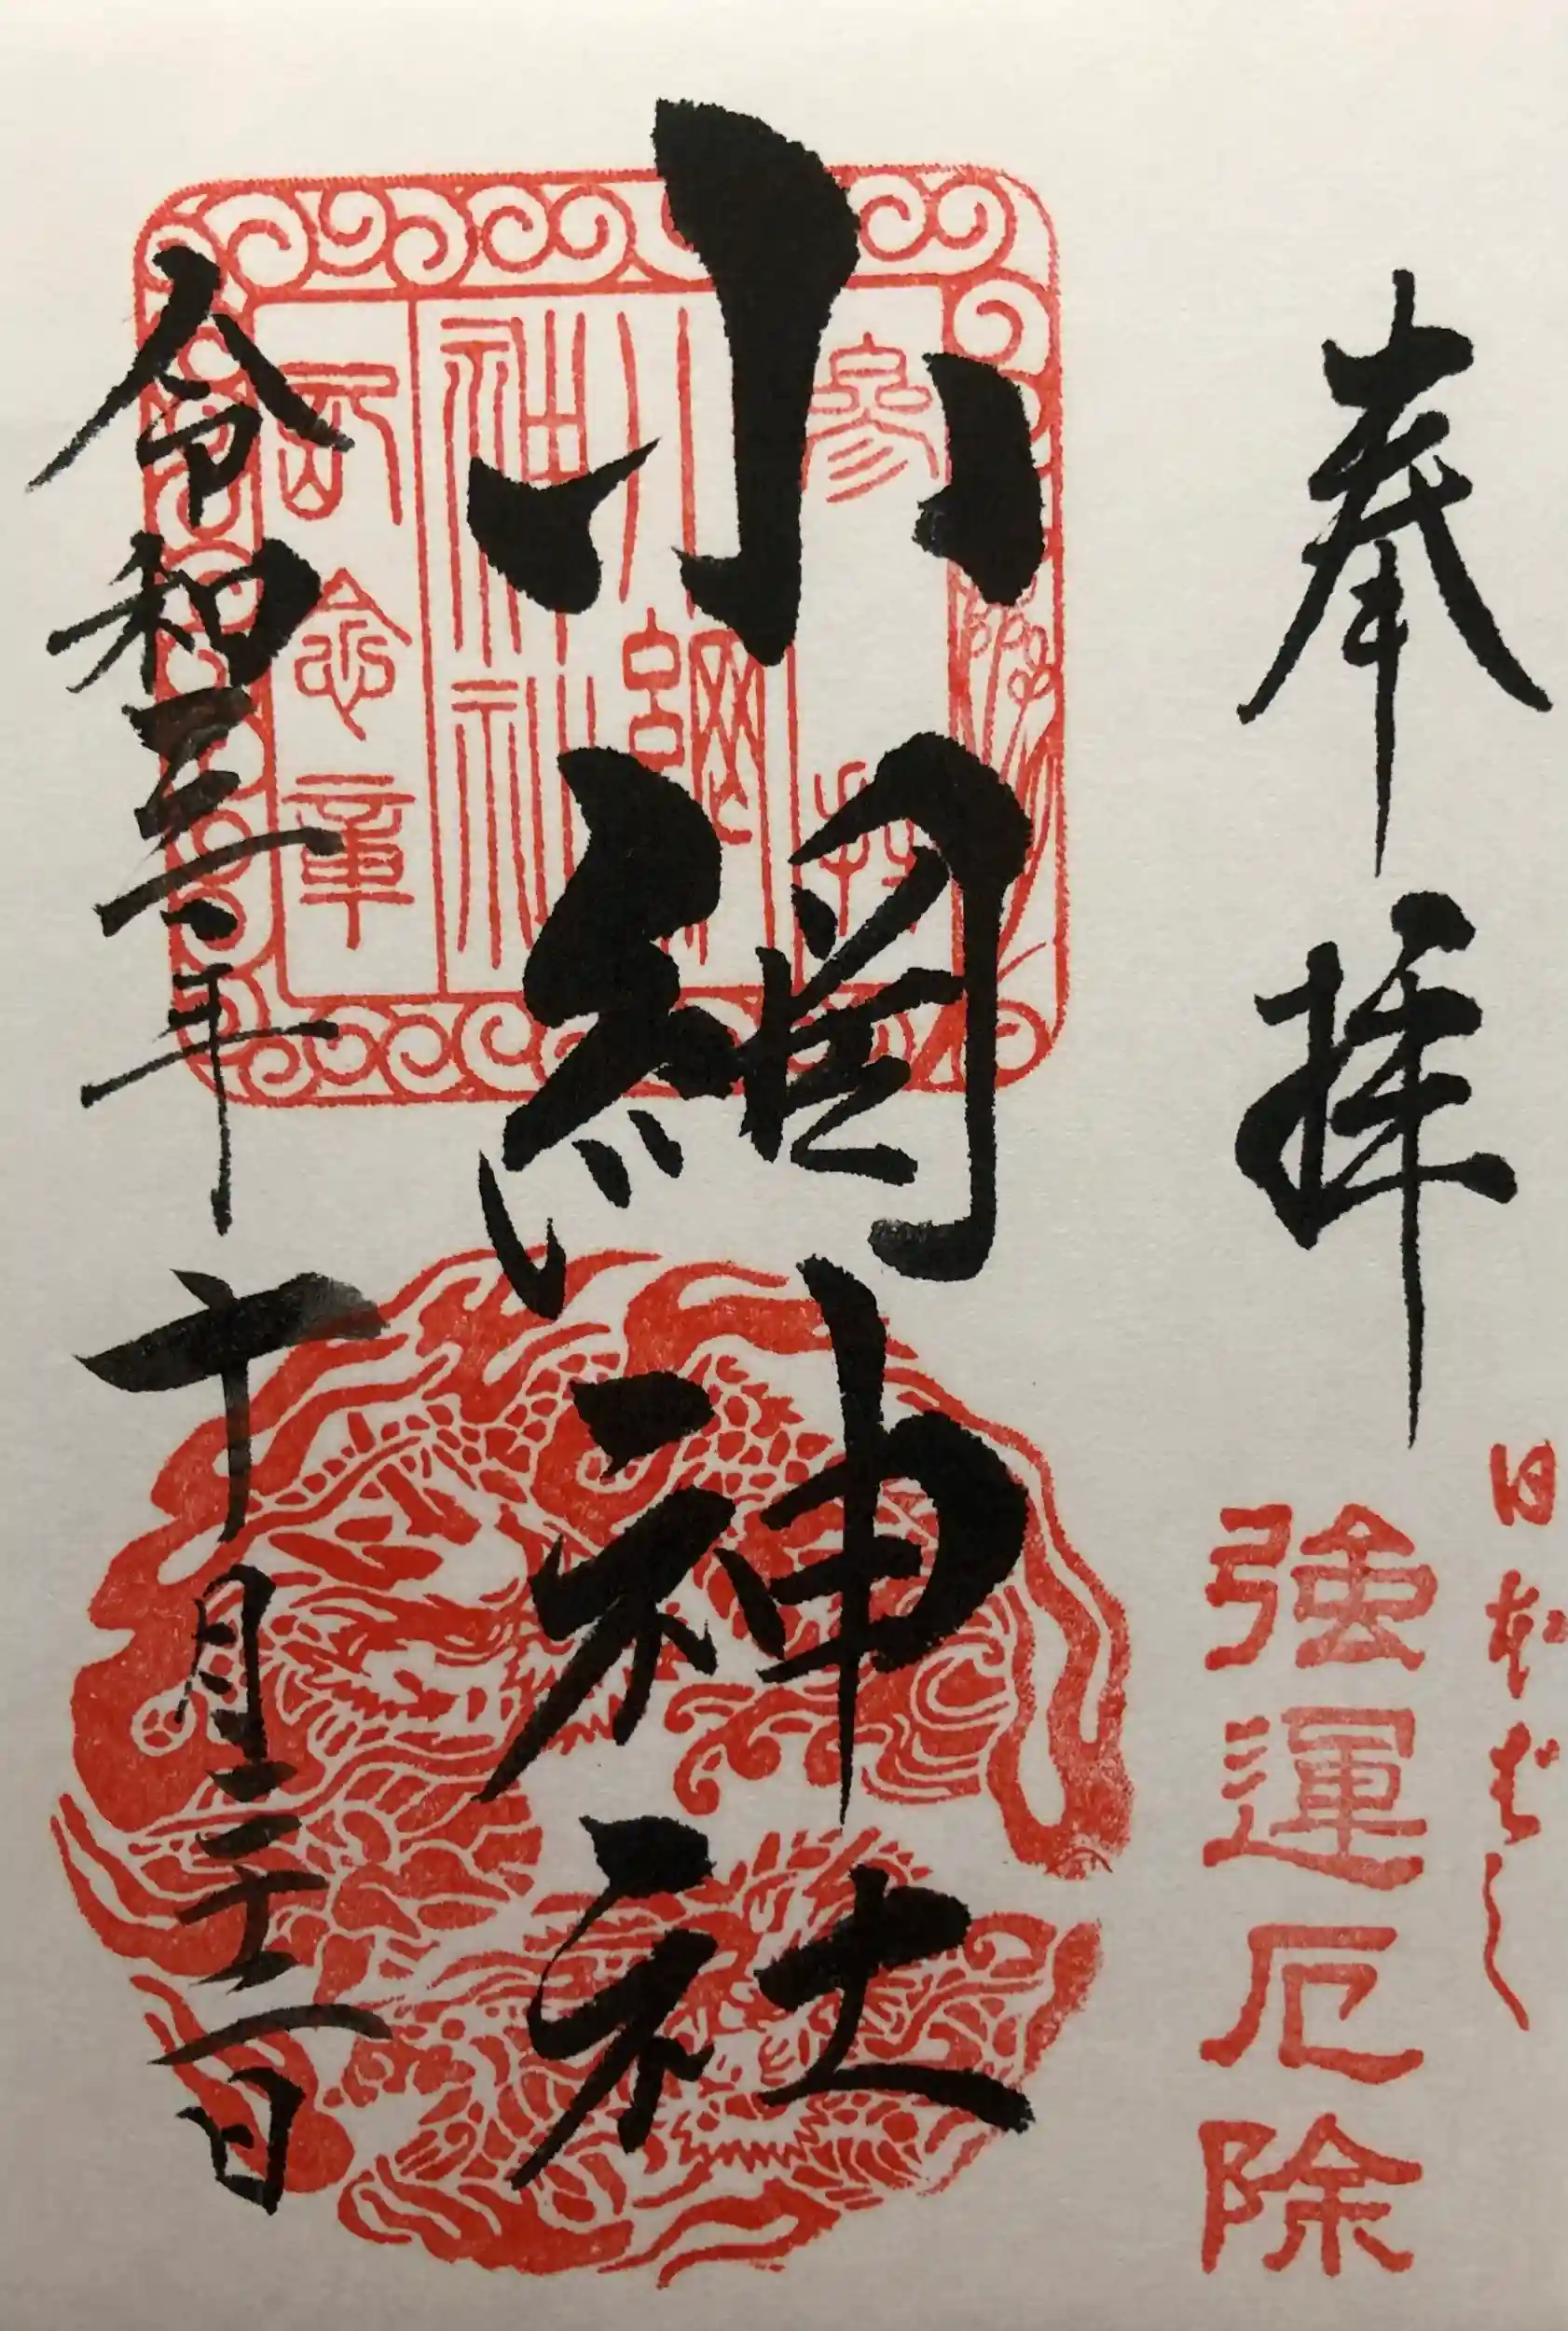 奉拝
日本ばし
強運厄除
小網神社
令和三年十月二十二日
参拝
小網
神社
念章